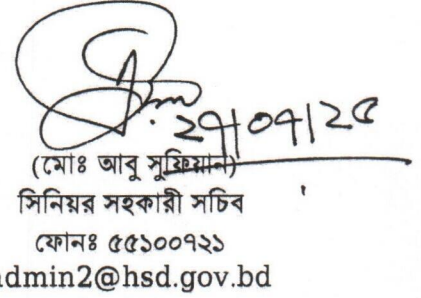 ২৭/০৭/২৫
(মোঃ আবু সুফিয়ান)
সিনিয়র সহকারী সচিব
ফোনঃ ৫৫১০০৭২১
admin2@hsd.gov.bd